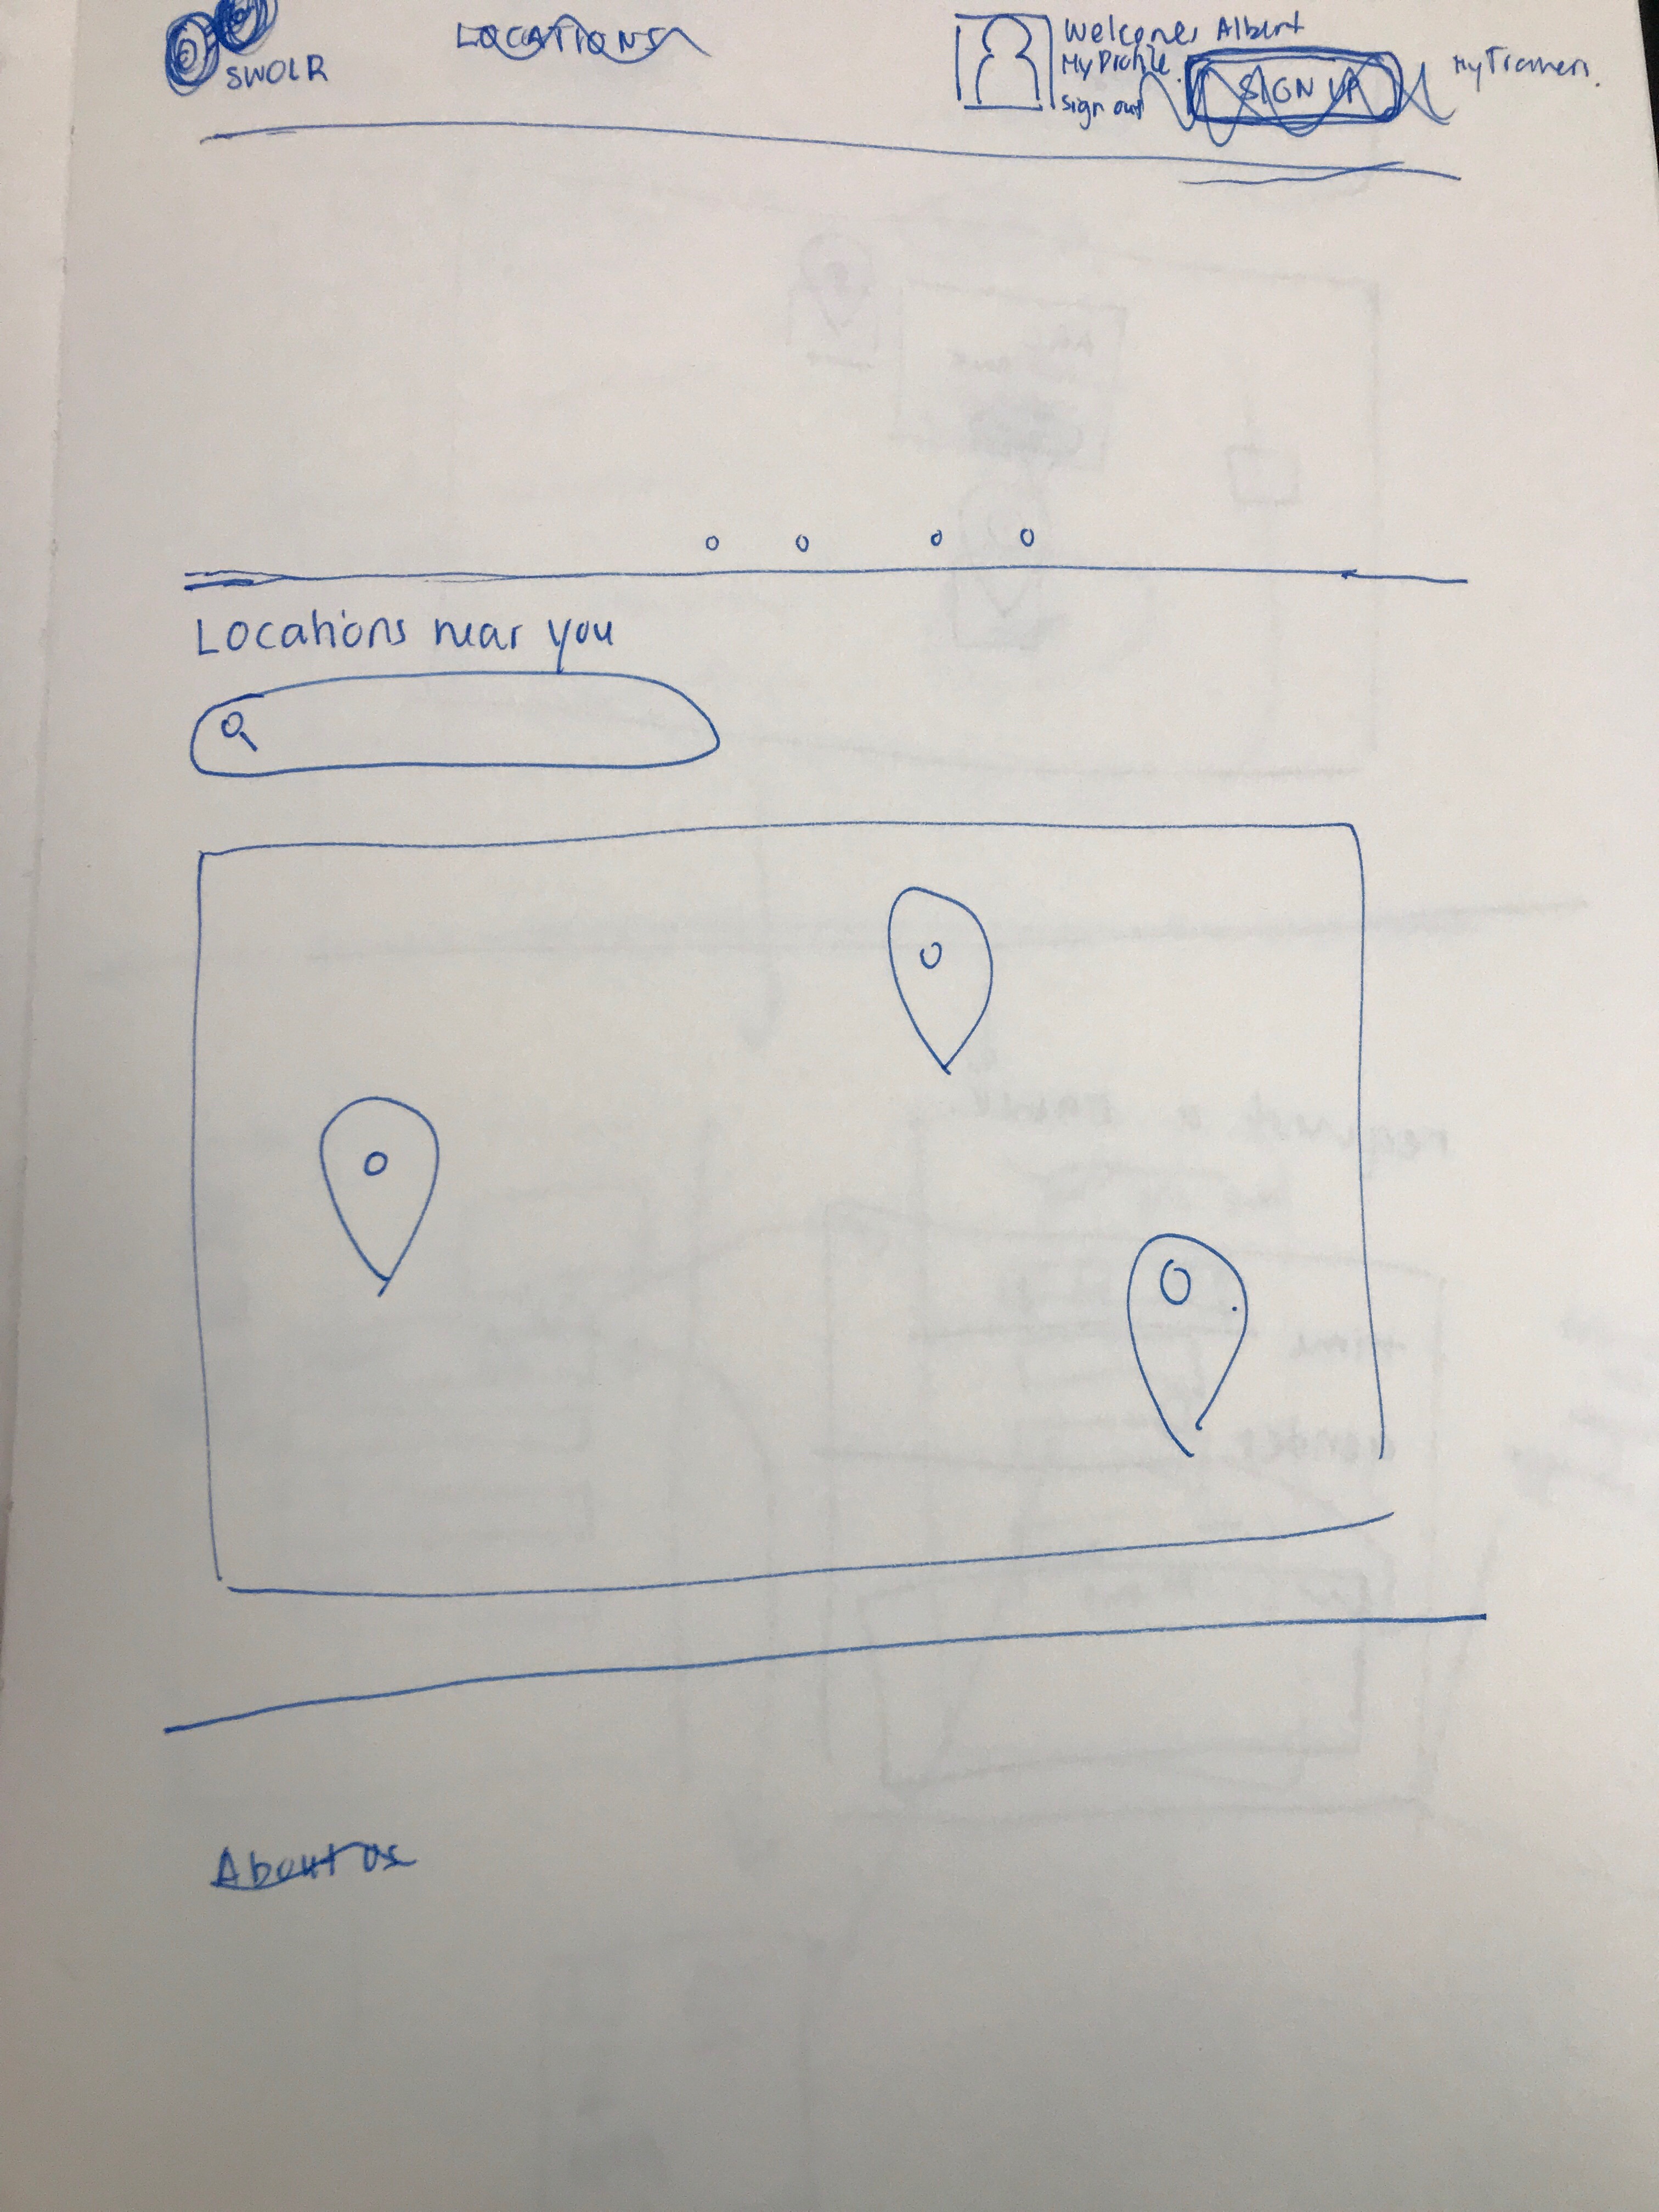 SWOLR
LOCATIONS
Welcome, Albert
My Profile
Sign out
SIGN UP
My Trainers.
Locations near you
About us
request a
time
gender